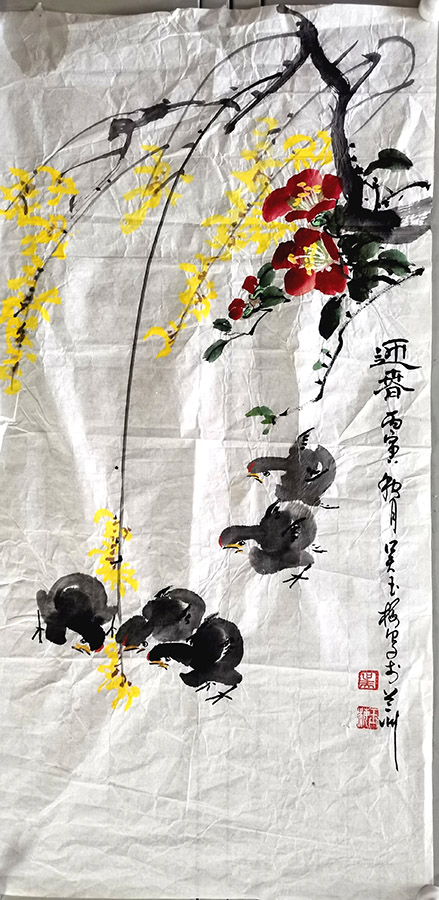 迎春
丙寅秋月吴玉梅写于兰州